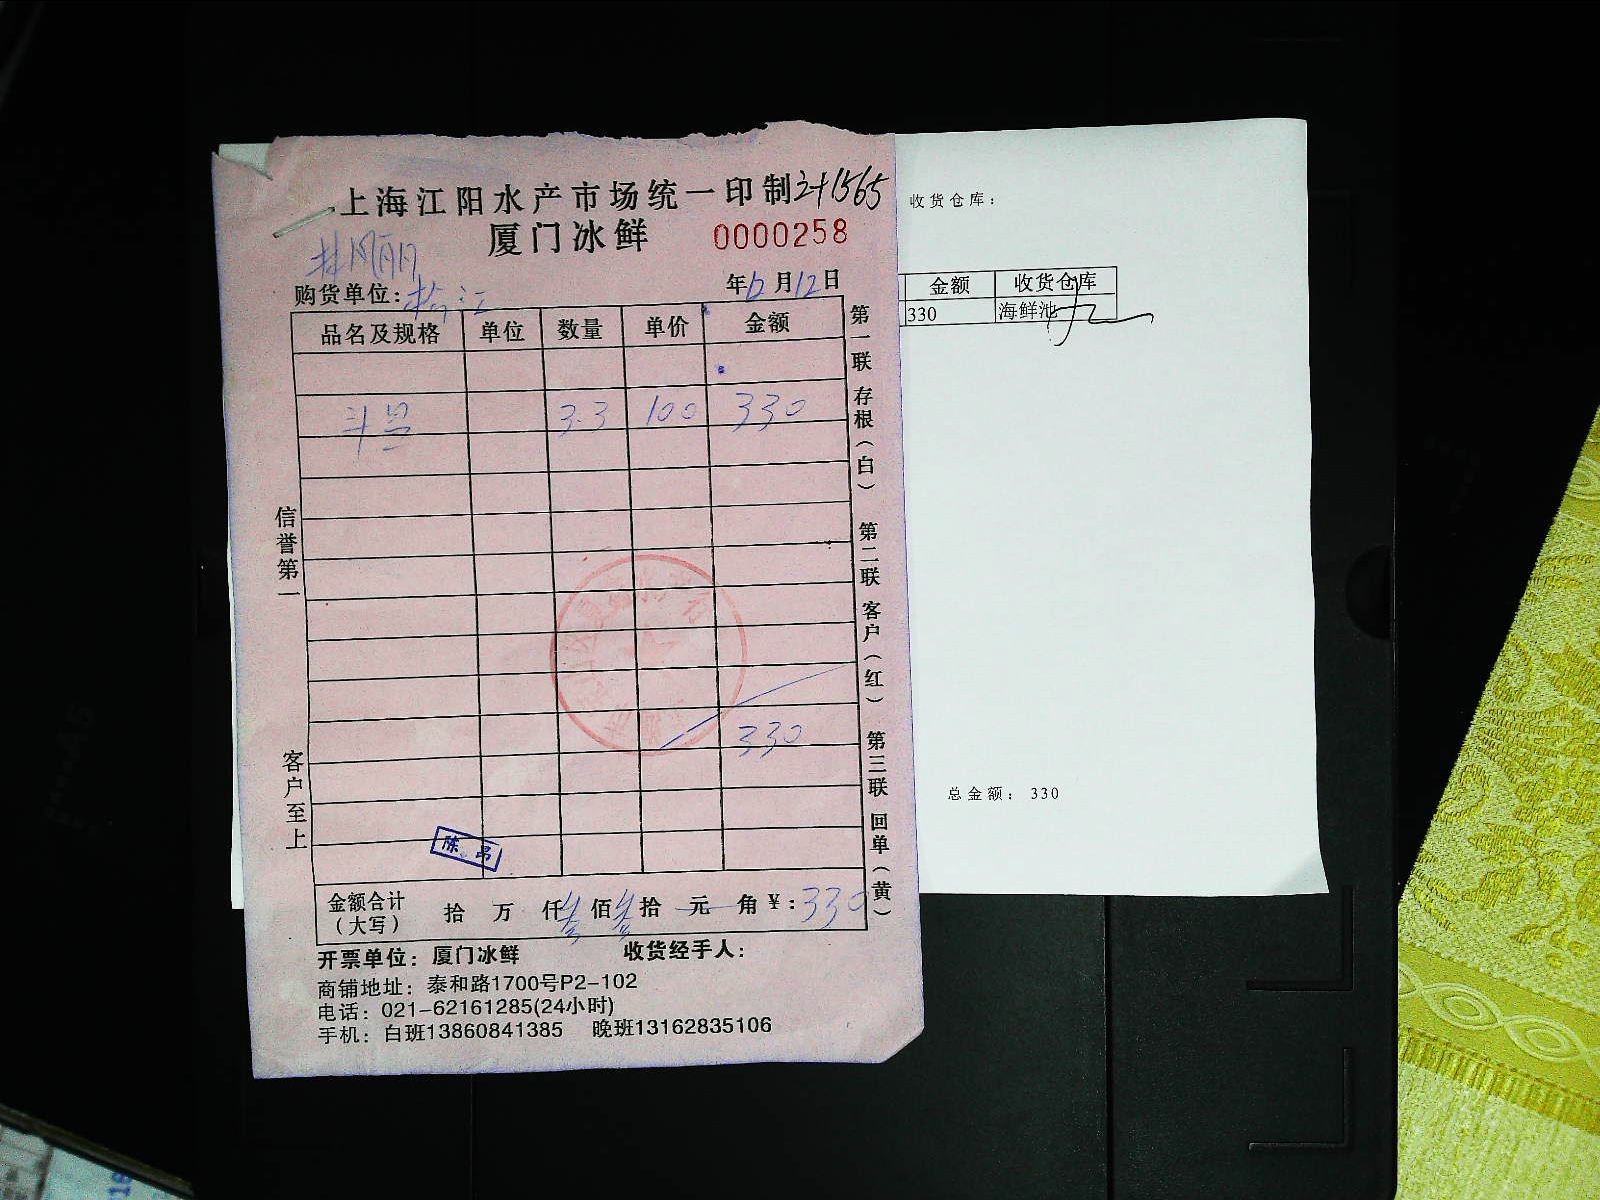 上海江阳水产市场统一印制
厦门冰鲜 0000258
林凤丽
购货单位： 年12月12日
品名及规格 单位 数量 单价 金额
3.3 100 330
330
陈昂
金额合计（大写） 拾 万 仟叁佰叁拾 元 角 ¥：330
开票单位：厦门冰鲜 收货经手人：
商铺地址：泰和路1700号P2-102
电话：021-62161285(24小时)
手机：白班13860841385 晚班13162835106
信誉第一
客户至上
第一联 存根（白） 第二联 客户（红） 第三联 回单（黄）
收货仓库：
金额 收货仓库
330 海鲜池
总金额：330